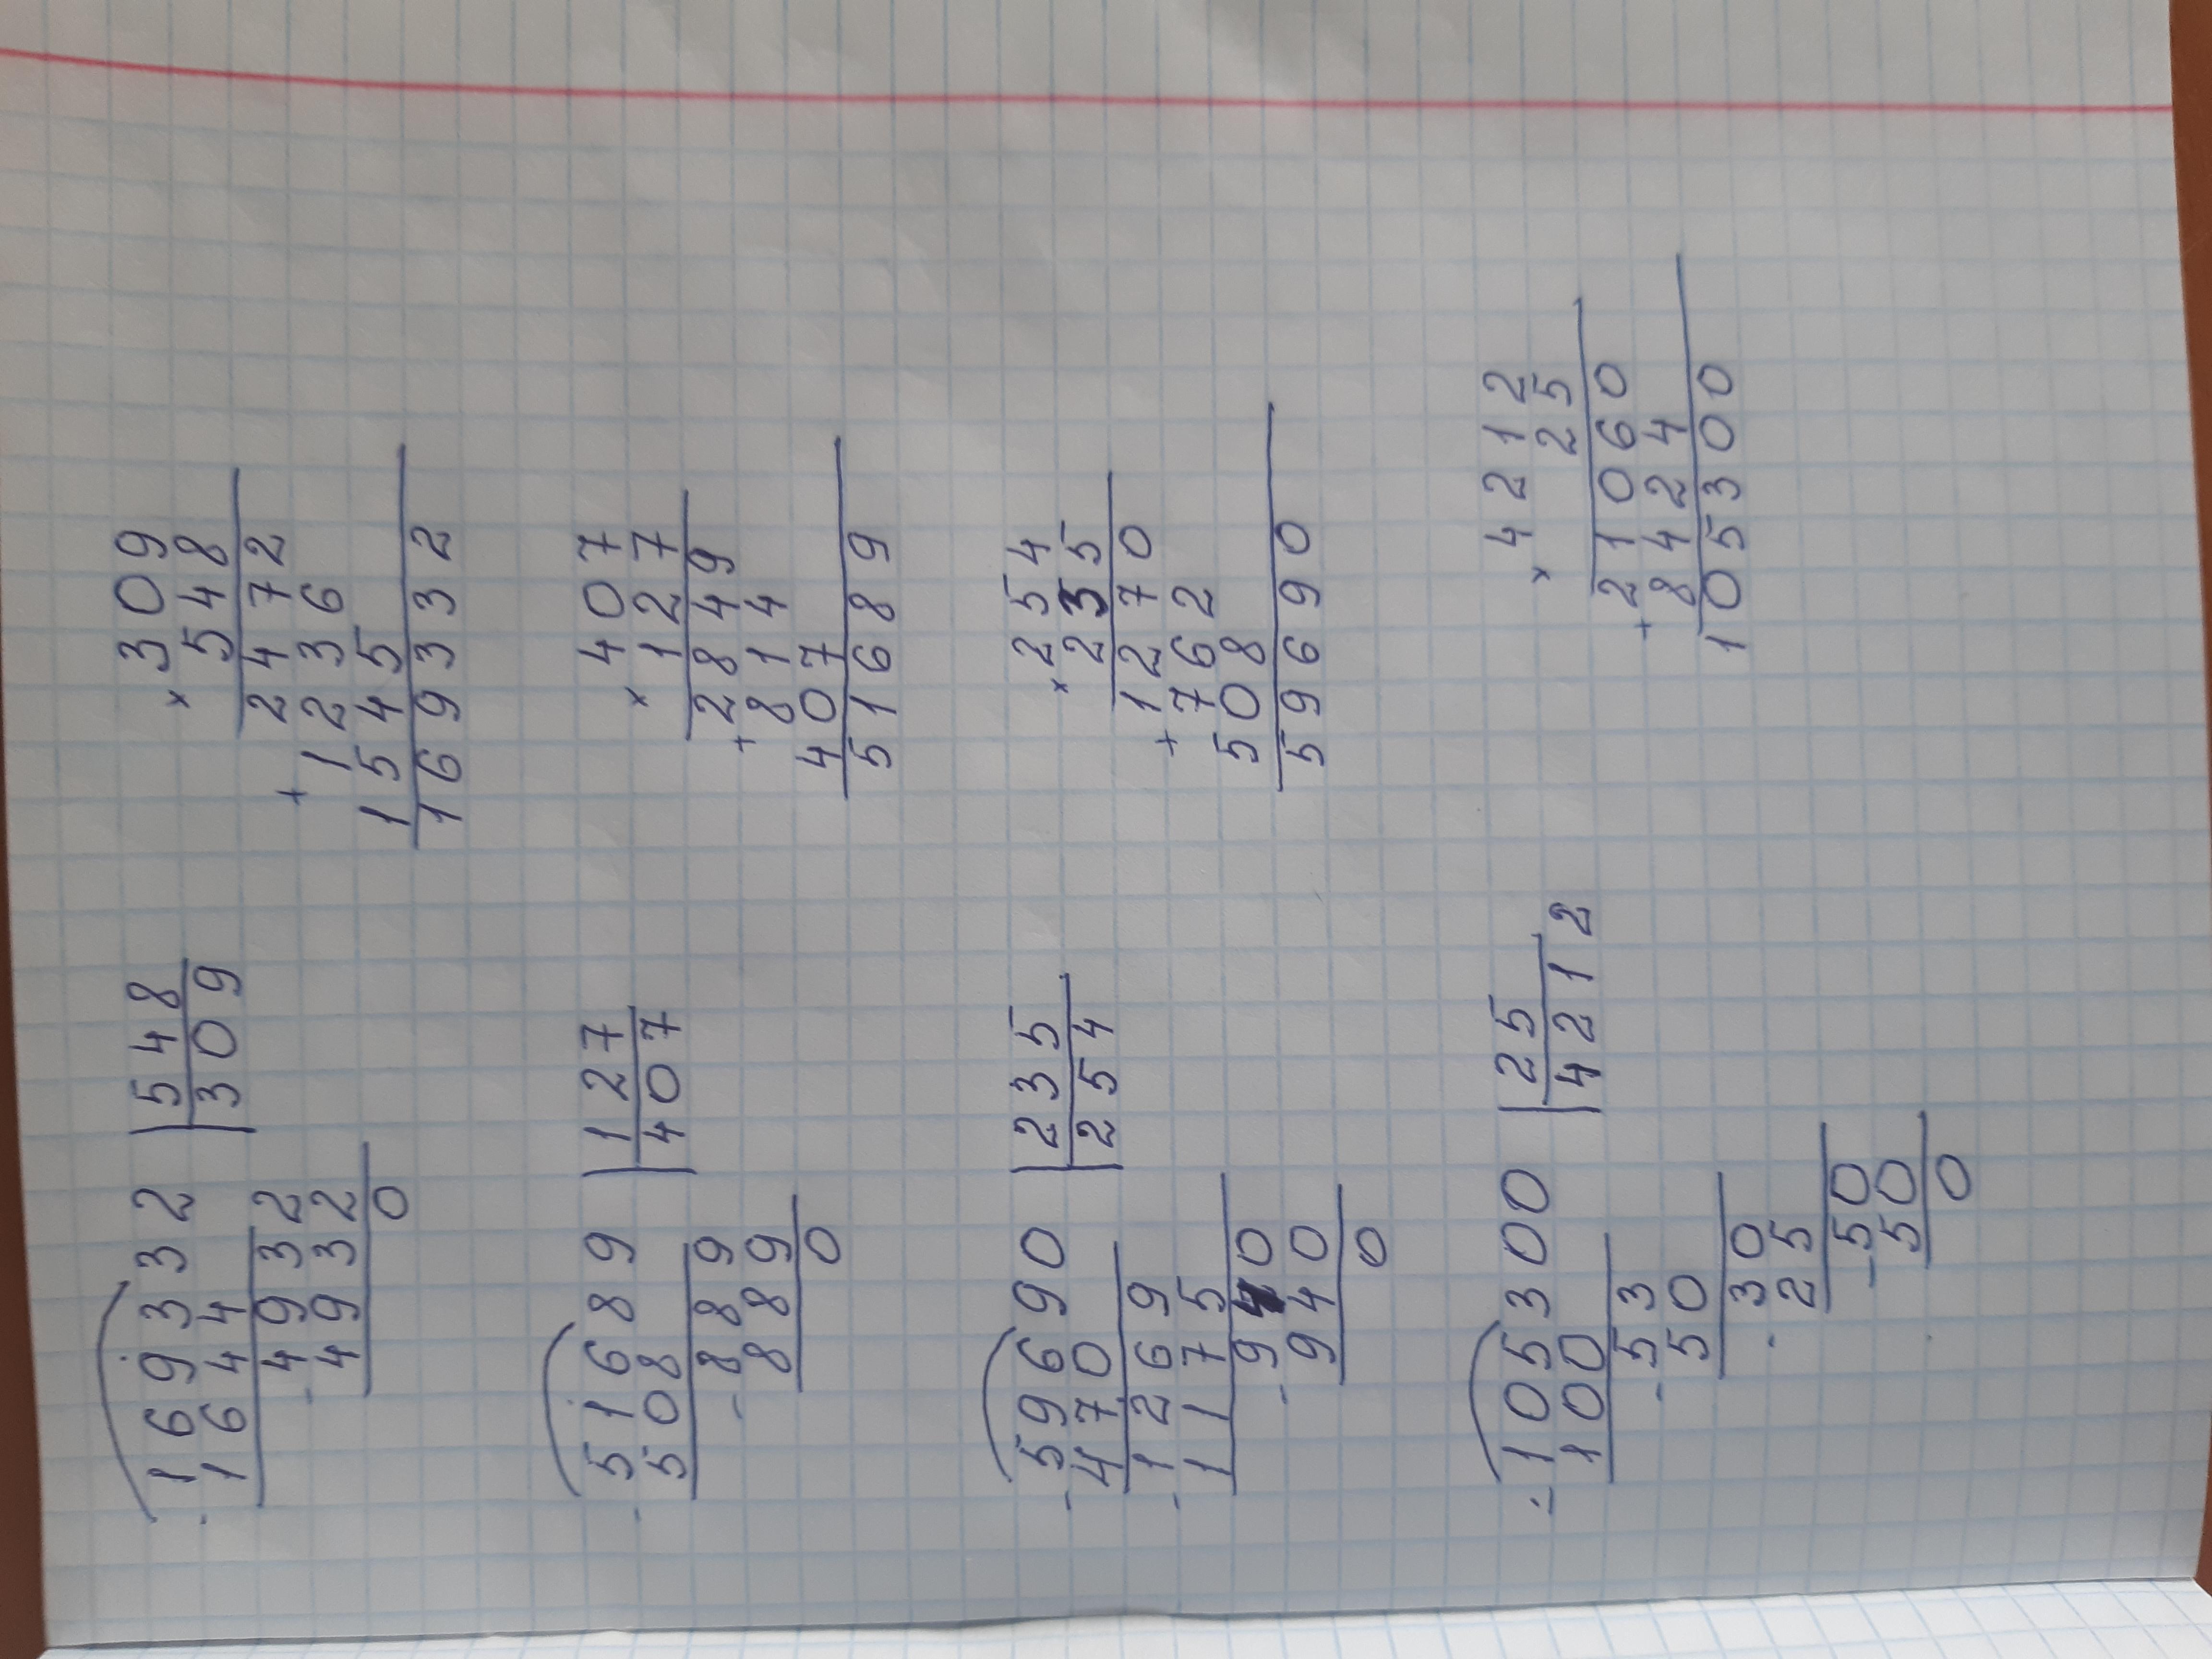 169332 | 548
- 1644 | 309
4932
- 4932
0
× 309
548
2472
+ 1236
1545
169332
51689 | 127
- 508 | 407
889
- 889
0
× 407
127
2849
+ 814
407
51689
59690 | 235
- 470 | 254
1269
- 1175
940
- 940
0
× 254
235
1270
+ 762
508
59690
105300 | 25
- 100 | 4212
53
- 50
30
- 25
50
- 50
0
× 4212
25
21060
+ 8424
105300